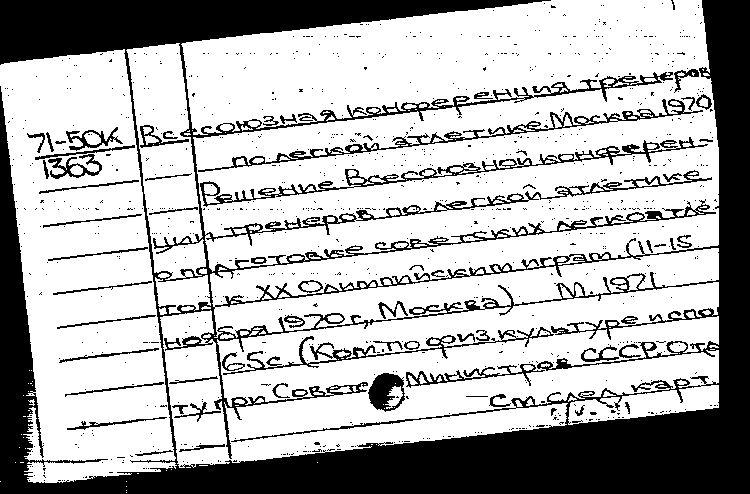 71-50К Всесоюзная конференция тренеров
1363 по легкой атлетике. Москва. 1970.
Решение Всесоюзной конферен-
ции тренеров по легкой атлетике
о подготовке советских легкоатле-
тов к XX Олимпийским играм. (11-15
ноября 1970 г., Москва). М., 1971.
65с. (Ком. по физ. культуре и спор
ту при Совете Министров СССР. Отд
См. след. карт.